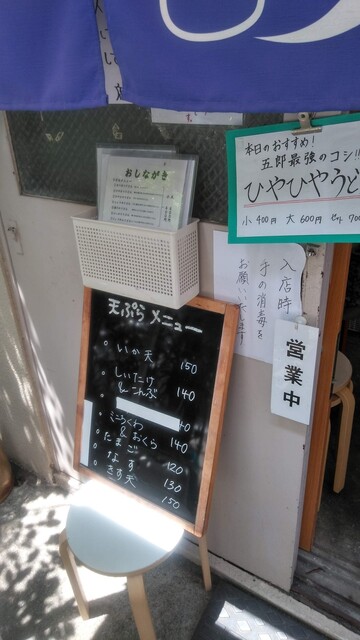 本日のおすすめ!
五郎最強のコシ!!
ひやひやうど
小 400円 大 600円 セット 700
おしながき
入店時
手の消毒を
お願いいたします
営業中
天ぷらメニュー
いか天 150
しいたけ
&こんぶ 140
40
ミニちくわ
&おくら 140
たまご 120
なす 130
きす天 150